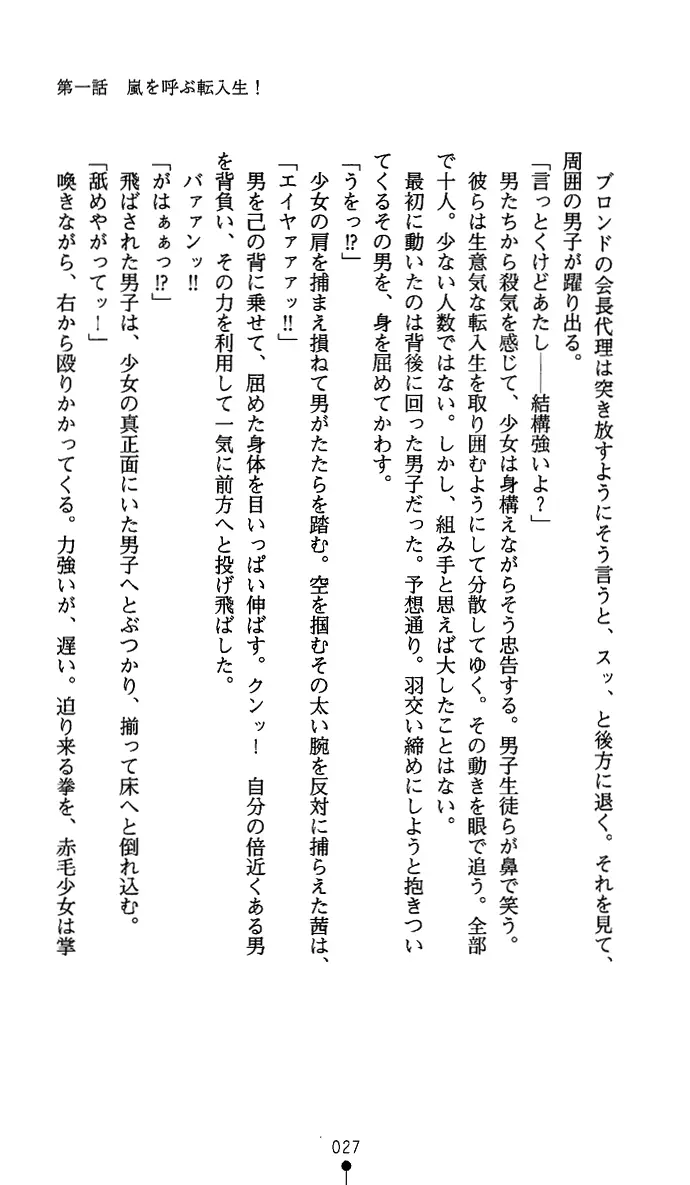 第一話　嵐を呼ぶ転入生！
　ブロンドの会長代理は突き放すようにそう言うと、スッ、と後方に退く。それを見て、
周囲の男子が躍り出る。
「言っとくけどあたし――結構強いよ？」
　男たちから殺気を感じて、少女は身構えながらそう忠告する。男子生徒らが鼻で笑う。
　彼らは生意気な転入生を取り囲むようにして分散してゆく。その動きを眼で追う。全部
で十人。少ない人数ではない。しかし、組み手と思えば大したことはない。
　最初に動いたのは背後に回った男子だった。予想通り。羽交い締めにしようと抱きつい
てくるその男を、身を屈めてかわす。
「うをっ!?」
　少女の肩を捕まえ損ねて男がたたらを踏む。空を掴むその太い腕を反対に捕らえた茜は、
「エイヤァァァッ!!」
　男を己の背に乗せて、屈めた身体を目いっぱい伸ばす。クンッ！　自分の倍近くある男
を背負い、その力を利用して一気に前方へと投げ飛ばした。
　バァァンッ!!
「がはぁぁっ!?」
　飛ばされた男子は、少女の真正面にいた男子へとぶつかり、揃って床へと倒れ込む。
「舐めやがってッ！」
　喚きながら、右から殴りかかってくる。力強いが、遅い。迫り来る拳を、赤毛少女は掌
027